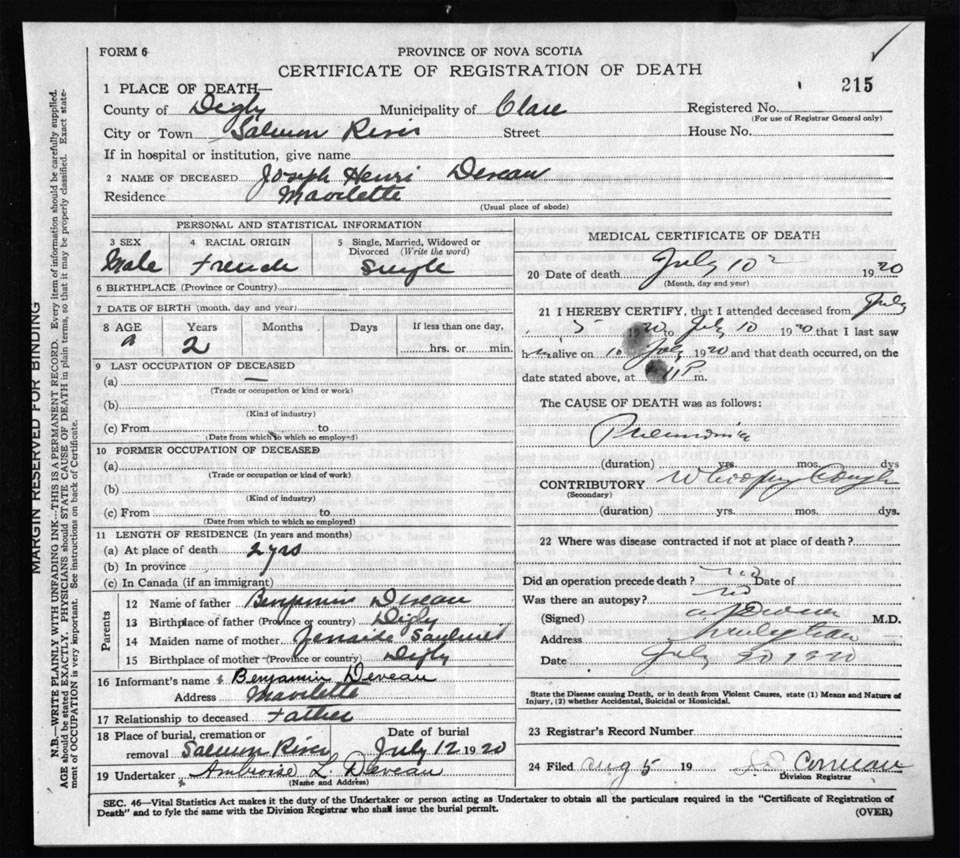 FORM 6
PROVINCE OF NOVA SCOTIA
CERTIFICATE OF REGISTRATION OF DEATH
215
1 PLACE OF DEATH—
County of Digby Municipality of Clare Registered No.
(For use of Registrar General only)
City or Town Salmon River Street House No.
If in hospital or institution, give name
2 NAME OF DECEASED Joseph Henri Deveau
Residence Mavilette
(Usual place of abode)
PERSONAL AND STATISTICAL INFORMATION
3 SEX 4 RACIAL ORIGIN 5 Single, Married, Widowed or
Divorced (Write the word)
Male French Single
6 BIRTHPLACE (Province or Country)
7 DATE OF BIRTH (month, day and year)
8 AGE Years Months Days If less than one day,
2 hrs. or min.
9 LAST OCCUPATION OF DECEASED
(a) —
(Trade or occupation or kind or work)
(b)
(Kind of industry)
(c) From to
(Date from which to which so employed)
10 FORMER OCCUPATION OF DECEASED
(a)
(Trade or occupation or kind or work)
(b)
(Kind of industry)
(c) From to
(Date from which to which so employed)
11 LENGTH OF RESIDENCE (In years and months)
(a) At place of death 2 yrs
(b) In province
(c) In Canada (if an immigrant)
Parents
12 Name of father Benjamin Deveau
13 Birthplace of father (Province or country) Digby
14 Maiden name of mother
15 Birthplace of mother (Province or country) Digby
16 Informant's name Benjamin Deveau
Address Mavilette
17 Relationship to deceased Father
18 Place of burial, cremation or Date of burial
removal Salmon River July 12 1920
19 Undertaker Ambroise L. Deveau
(Name and Address)
MEDICAL CERTIFICATE OF DEATH
20 Date of death July 10 1920
(Month, day and year)
21 I HEREBY CERTIFY, that I attended deceased from July
5 20 to July 10 1920 that I last saw
him alive on 10 July 1920 and that death occurred, on the
date stated above, at 11 P m.
The CAUSE OF DEATH was as follows:
Pneumonia
(duration) yrs. mos. dys
CONTRIBUTORY Whooping Cough
(Secondary)
(duration) yrs. mos. dys.
22 Where was disease contracted if not at place of death?
Did an operation precede death? no Date of
Was there an autopsy? no
(Signed) M.D.
Address
Date July 20 1920
State the Disease causing Death, or in death from Violent Causes, state (1) Means and Nature of
Injury, (2) whether Accidental, Suicidal or Homicidal.
23 Registrar's Record Number
24 Filed Aug 5 19 Comeau
Division Registrar
SEC. 46—Vital Statistics Act makes it the duty of the Undertaker or person acting as Undertaker to obtain all the particulars required in the "Certificate of Registration of
Death" and to fyle the same with the Division Registrar who shall issue the burial permit.
(OVER)
MARGIN RESERVED FOR BINDING
N.B.—WRITE PLAINLY WITH UNFADING INK—THIS IS A PERMANENT RECORD. Every item of information should be carefully supplied.
AGE should be stated EXACTLY. PHYSICIANS should STATE CAUSE OF DEATH in plain terms, so that it may be properly classified. Exact state-
ment of OCCUPATION is very important. See instructions on back of Certificate.